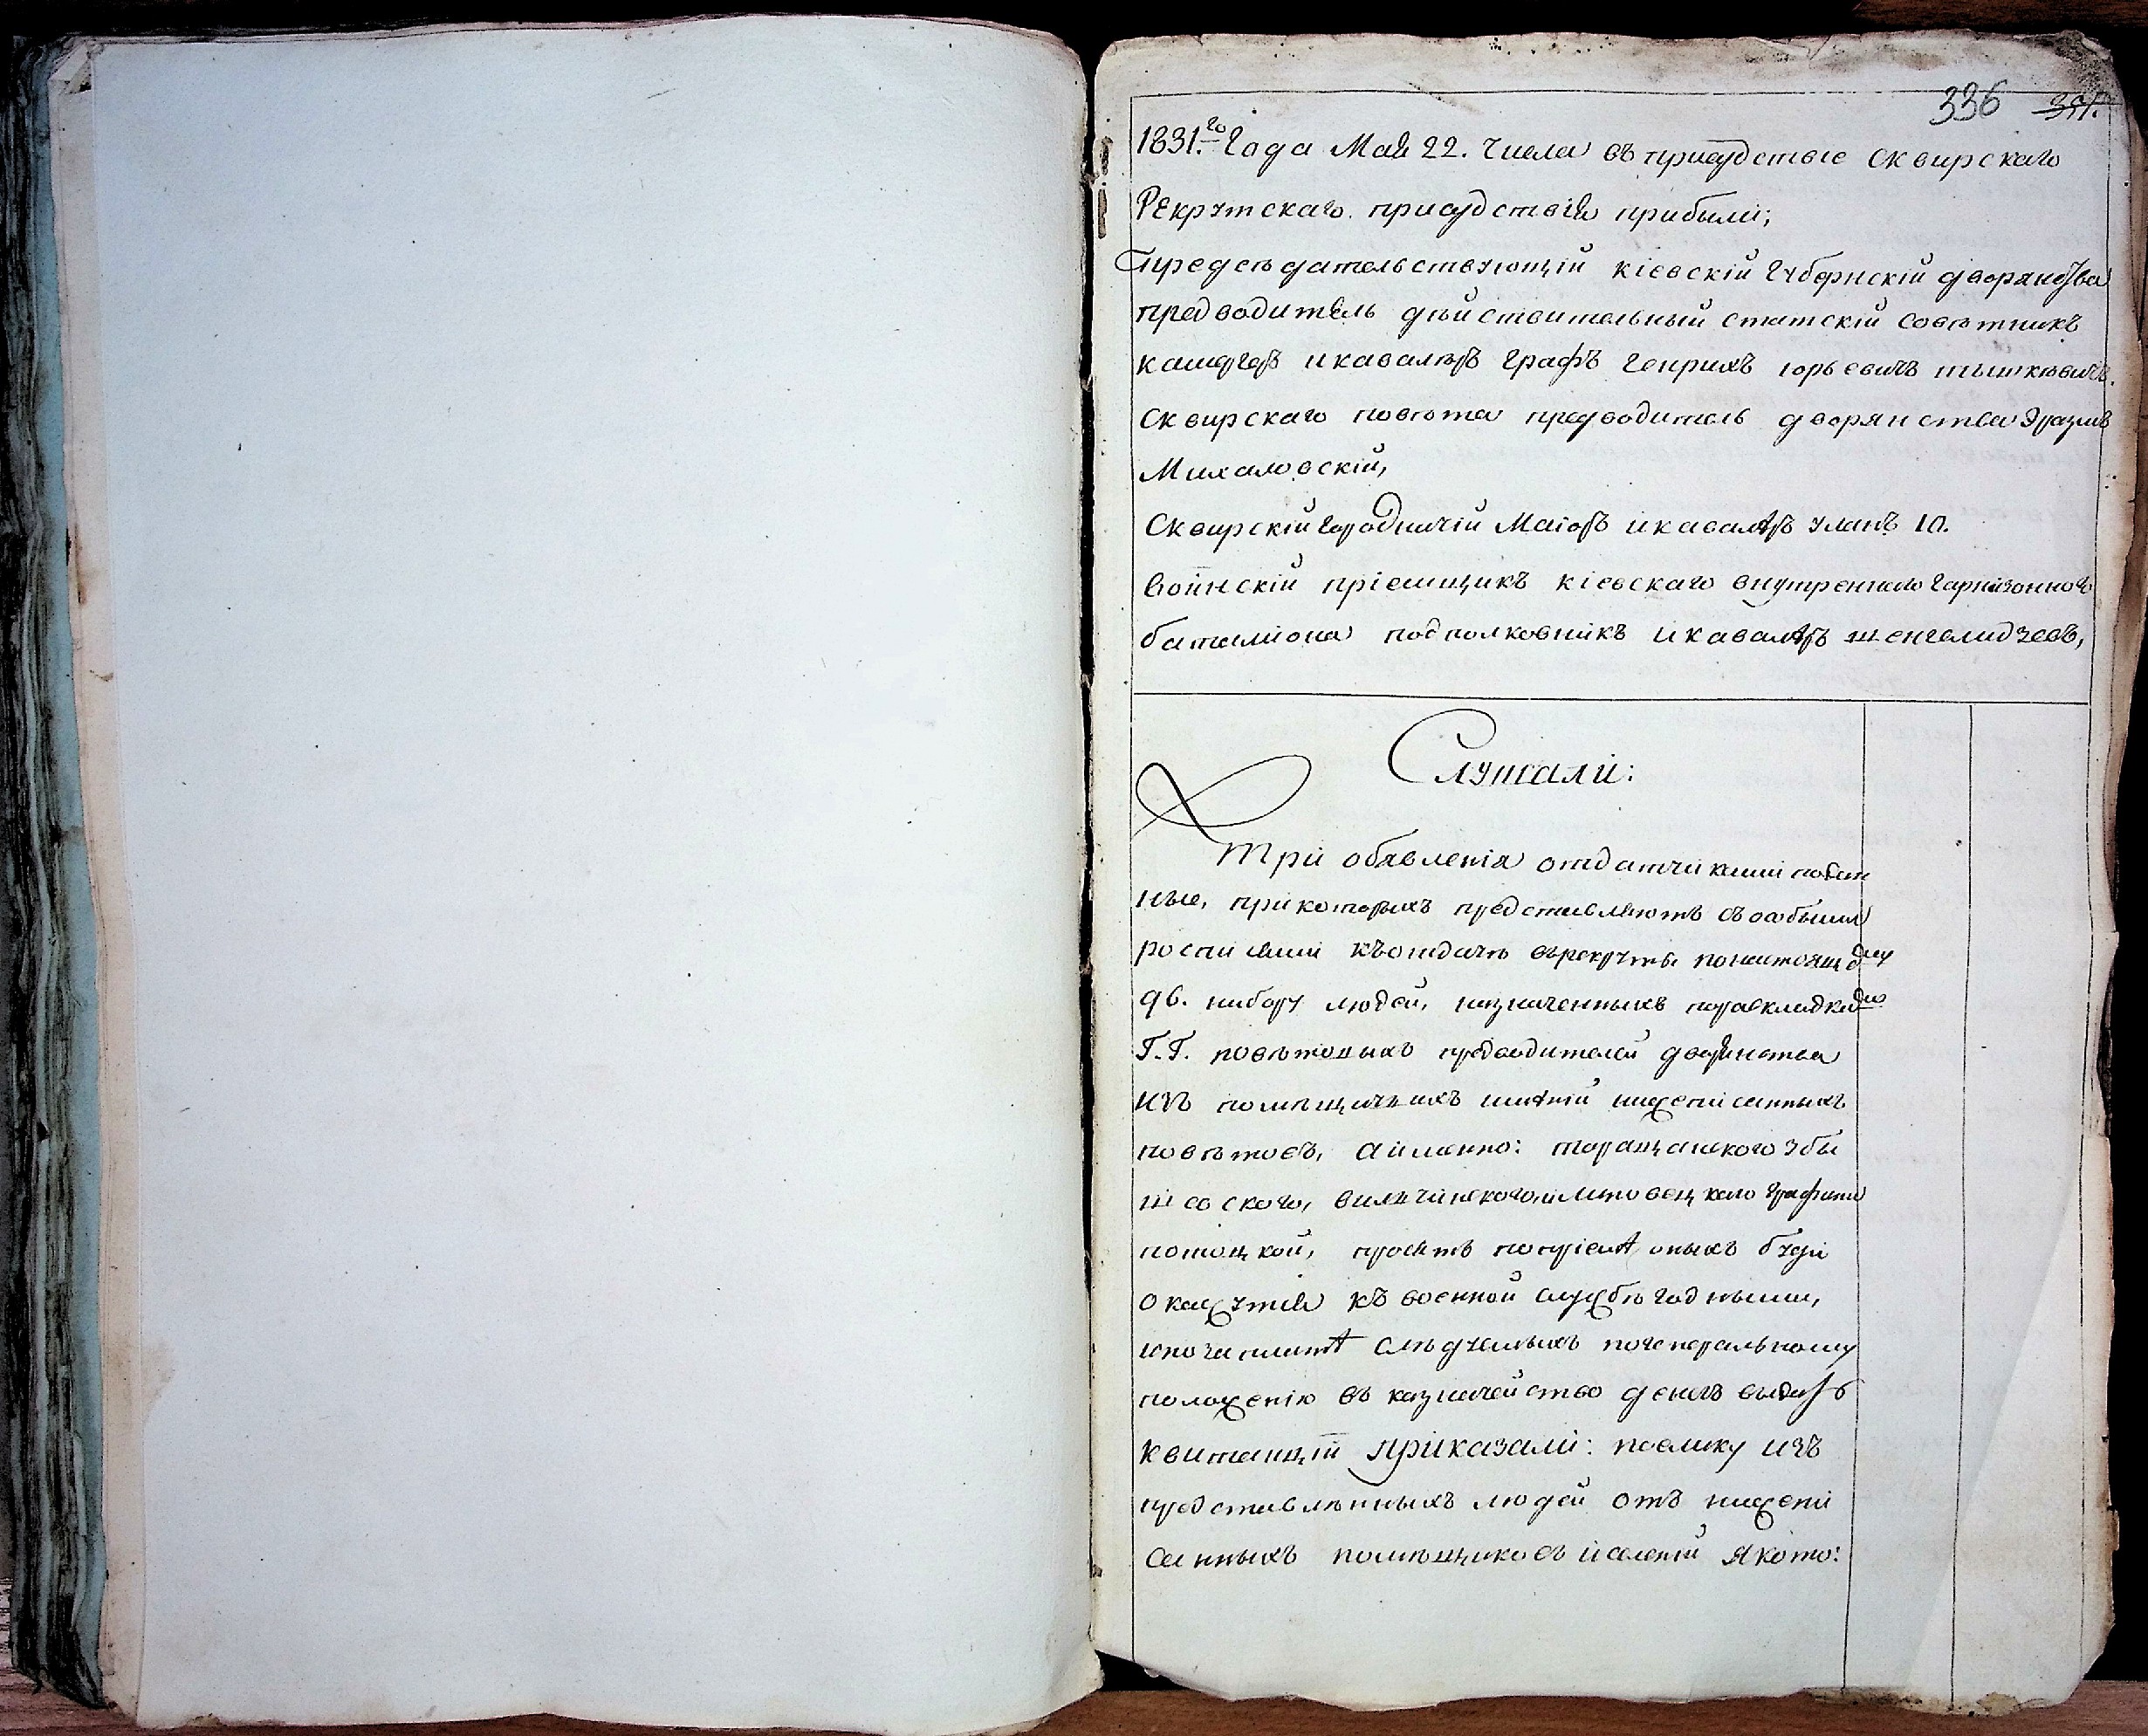 336 391.
1831.го Года Мая 22. Числа въ присудствіе Сквирскаго
Рекрутскаго присудствія прибыли;
Председательствующій Кіевскій Губернскій дворянства
предводитель действительный статскій советникъ
камергеръ и кавалеръ графъ Генрихъ Юрьевичъ Тышкевичъ.
Сквирскаго повета предводитель дворянства Эразмъ
Михаловскій,
Сквирскій городничій Маіоръ и кавалеръ Уланъ
Воинскій пріемщикъ кіевскаго внутренняго гарнизоннаго
баталіона подполковникъ и кавалеръ
Слушали:
Три обявленія отдатчиками подан
ные, при которыхъ представляютъ съ особыми
росписями къ отдаче въ рекруты по настоящему
96. набору людей, назначенныхъ по раскладкамъ
Г.Г. поветовыхъ предводителей дворянства
изъ помещичихъ именій нижеписанныхъ
поветовъ, а именно: таращанского
графини
потоцкой, просятъ попріеме оныхъ буди
окажутся къ военной службе годными,
и по заплате следуемыхъ по генеральному
положенію въ казначейство денегъ выдать
квитанціи Приказали: поелику изъ
представленныхъ людей отъ нижепи
санныхъ помещиковъ и селеній якото: